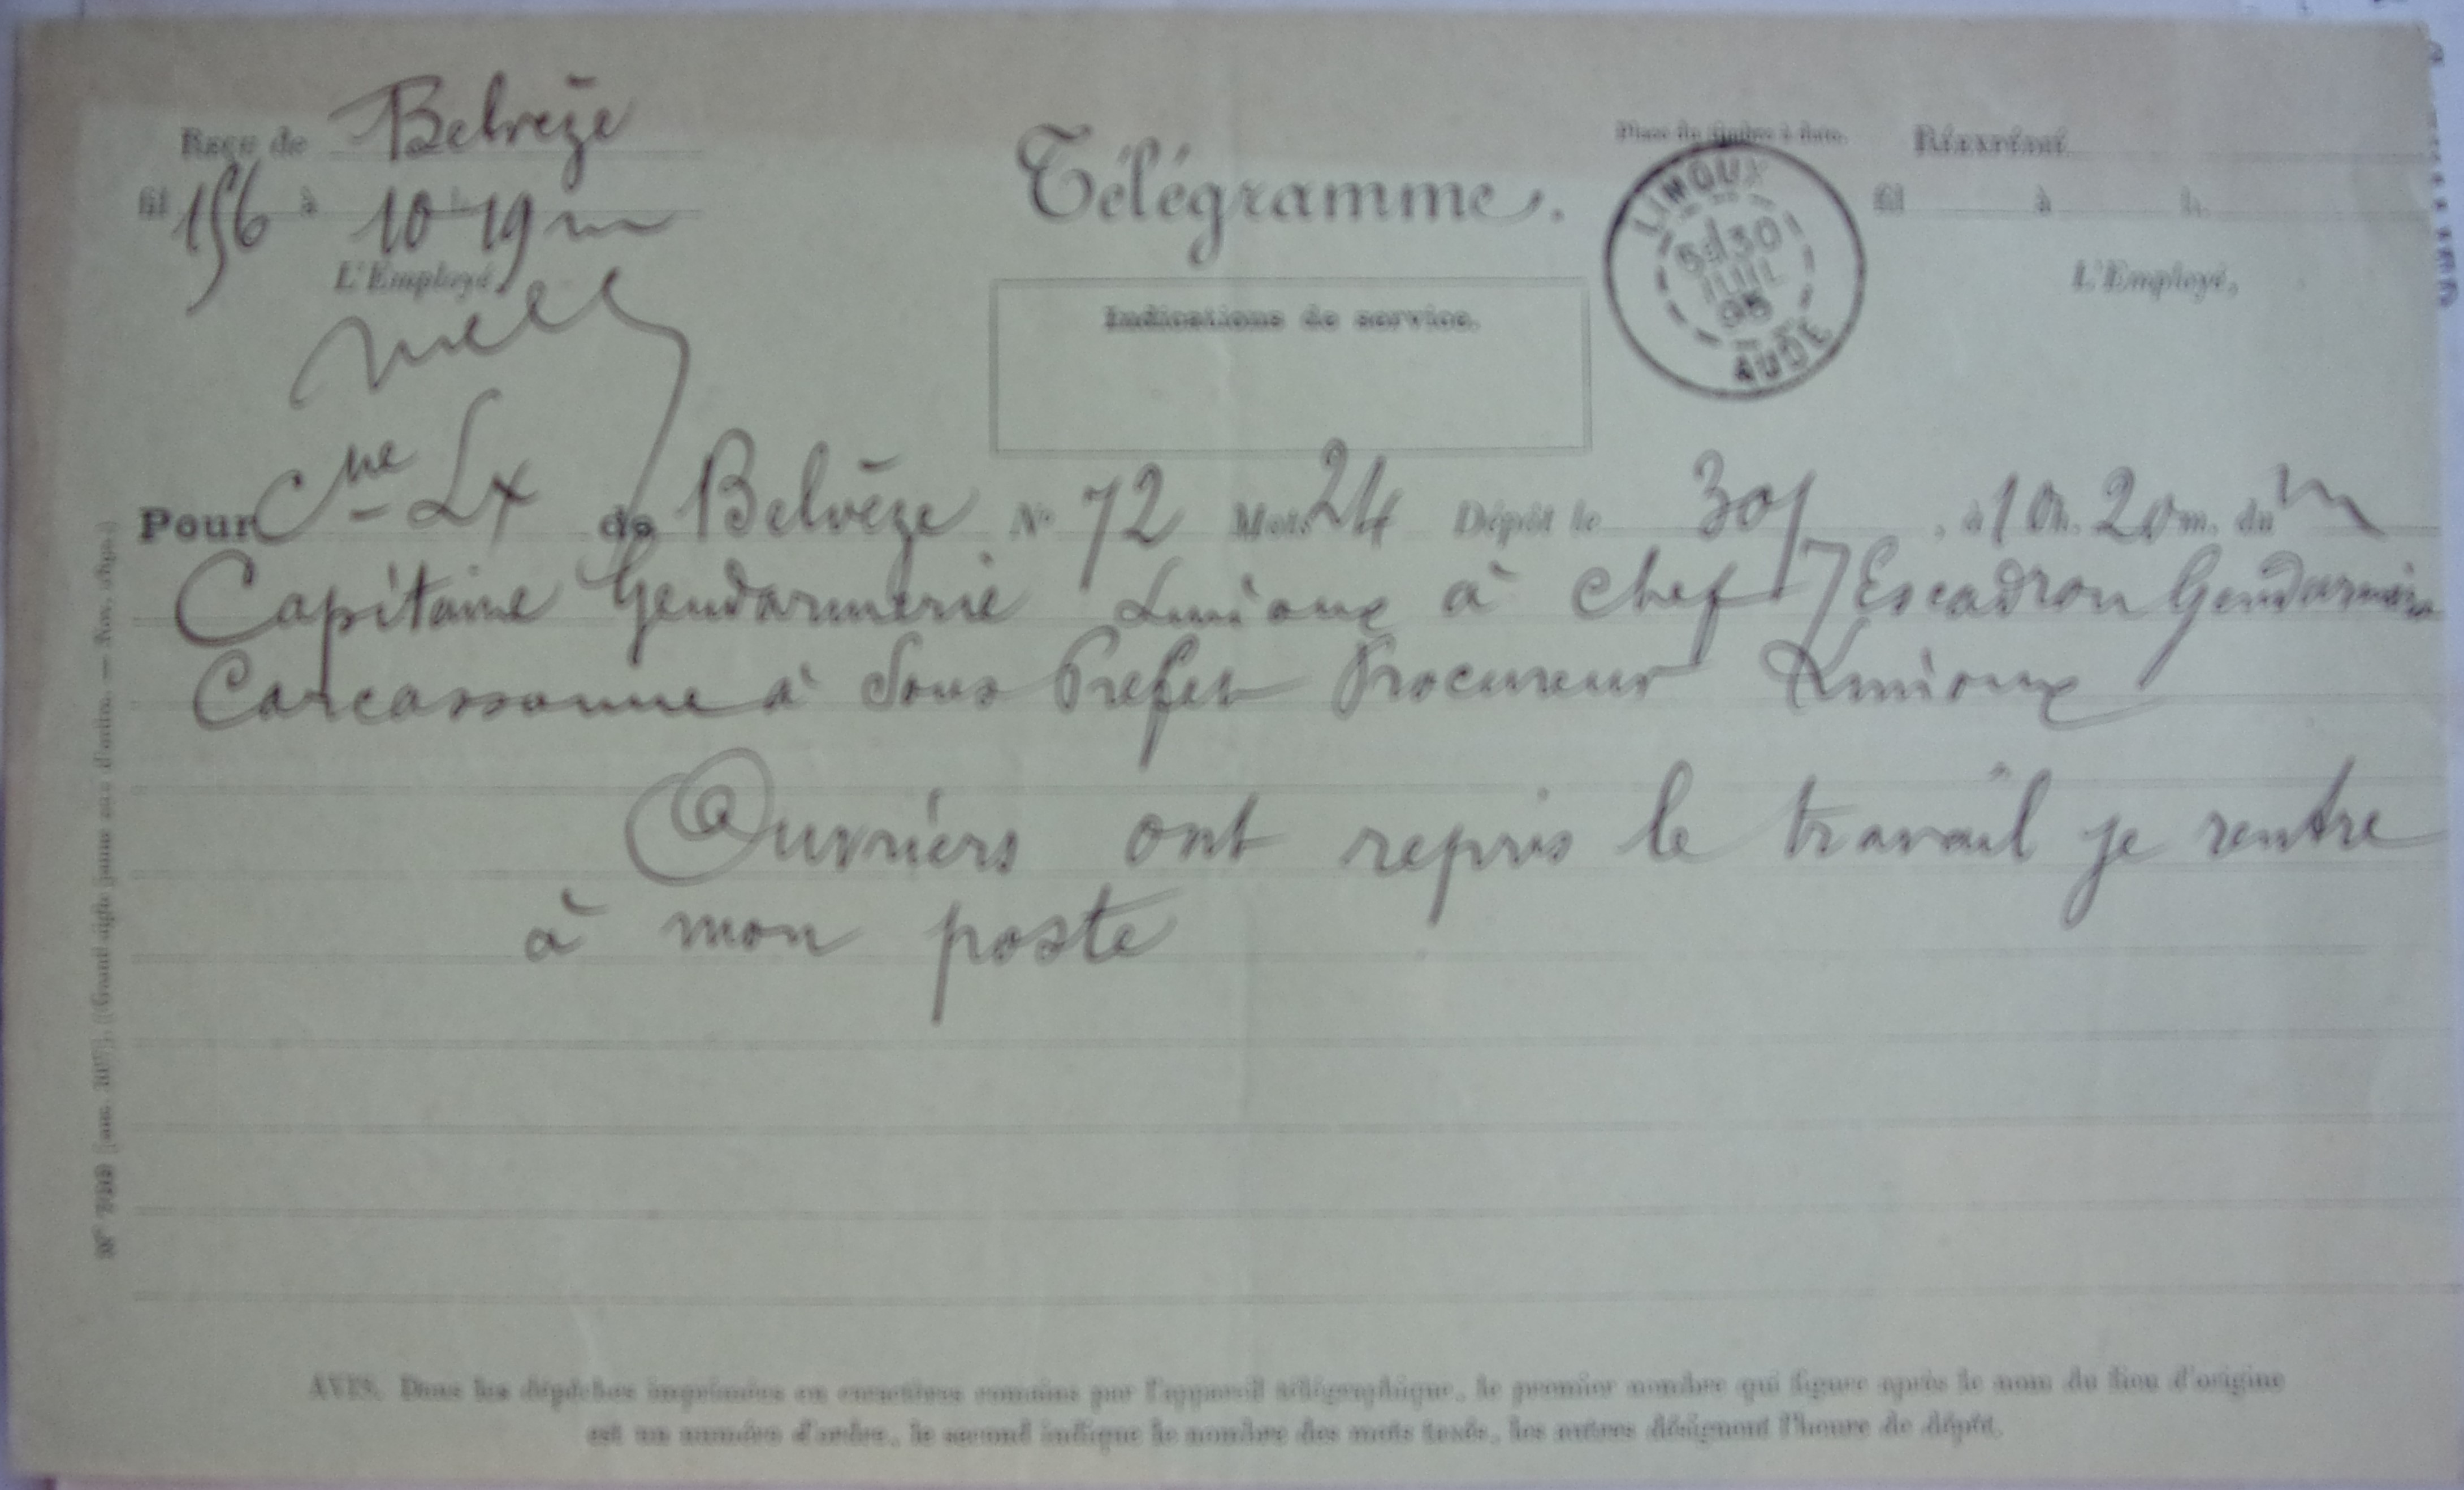 Reçu de Belvèze
fil 156 à 10 h 19 m
L'Employé,
Télégramme.
Indications de service.
Place du timbre à date.
LIMOUX
5e 30
JUIL
95
AUDE
Réexpédié
fil à h.
L'Employé,
Pour Cne Lx de Belvèze N° 72 Mots 24 Dépôt le 30/7, à 10 h. 20 m. du m
Capitaine Gendarmerie Limoux à chef Escadron Gendarmerie
Carcassonne à Sous Prefet Procureur Limoux
Ouvriers ont repris le travail je rentre
à mon poste
AVIS. Dans les dépêches imprimées en caractères romains par l'appareil télégraphique, le premier nombre qui figure après le nom du lieu d'origine
est un numéro d'ordre, le second indique le nombre des mots taxés, les autres désignent l'heure de dépôt.